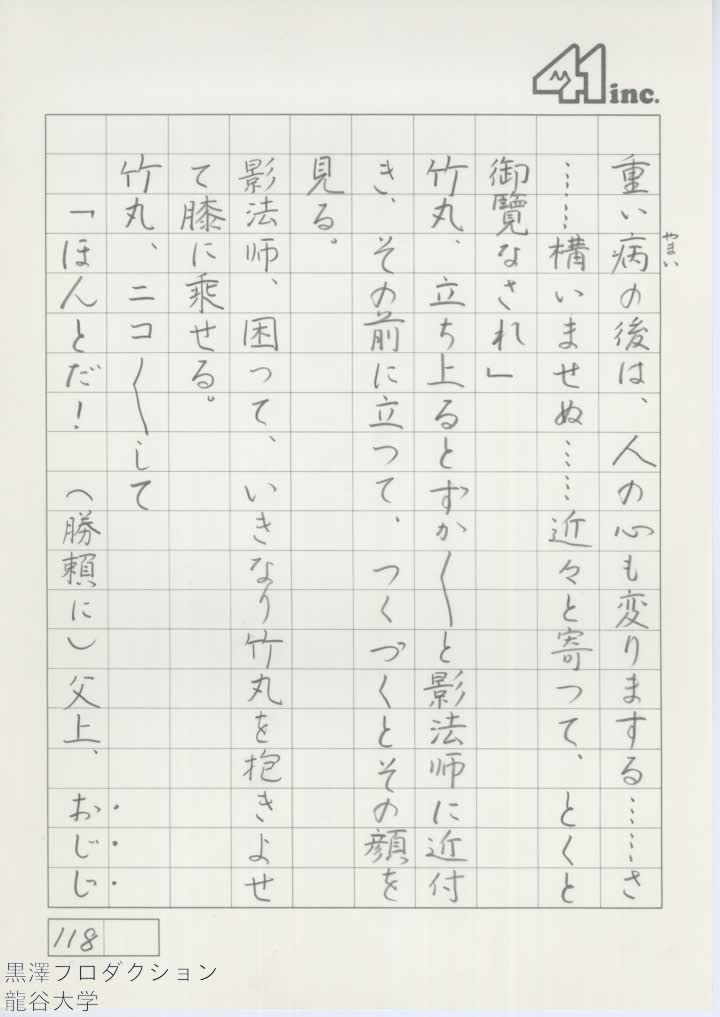 41 inc.
重い病の後は、人の心も変りまする……さ
やまい
……構いませぬ……近々と寄つて、とくと
御覽なされ」
竹丸、立ち上るとずか〱と影法師に近付
き、その前に立つて、つくづくとその顔を
見る。
影法師、困って、いきなり竹丸を抱きよせ
て膝に乗せる。
竹丸、ニコ〱して
「ほんとだ！　（勝頼に）父上、おじじ
118
黒澤プロダクション
龍谷大学